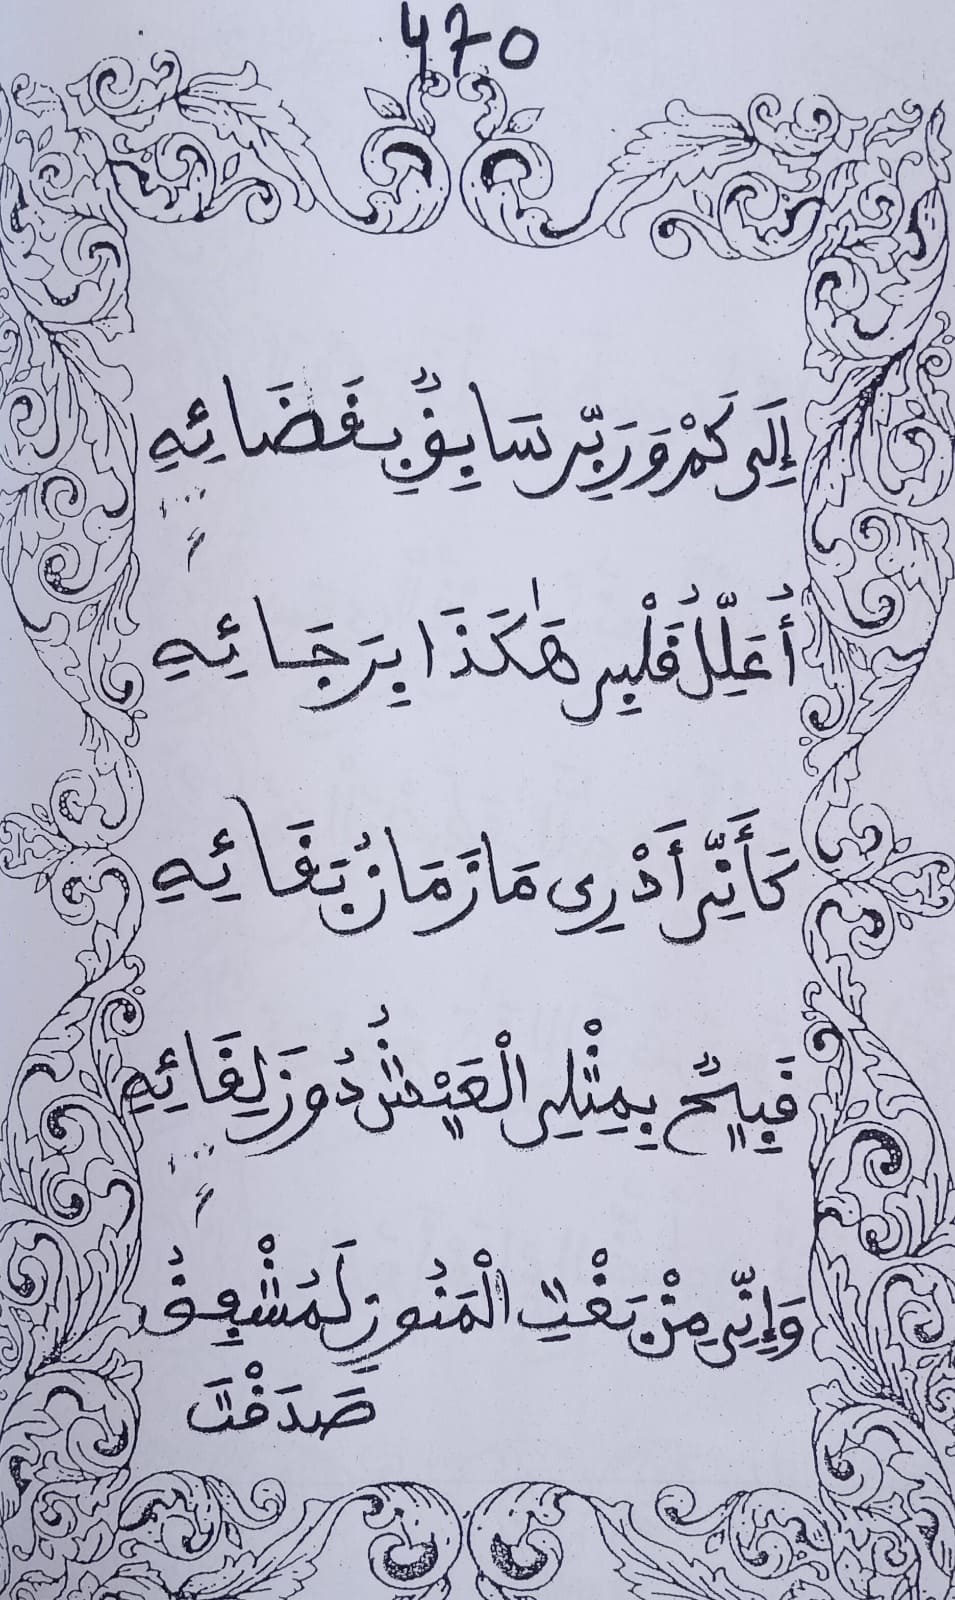 470
إِلَى كَمْ وَرَبِّي سَابِقٌ بِقَضَائِهِ
أُعَلِّلُ قَلْبِي هَٰكَذَا بِرَجَائِهِ
كَأَنِّي أَدْرِي مَا زَمَانُ بَقَائِهِ
قَبِيحٌ بِمِثْلِي الْعَيْشُ دُونَ لِقَائِهِ
وَإِنِّي مِنْ بَغْتِ الْمَنُونِ لَمُشْفِقُ
صَدَقْتَ